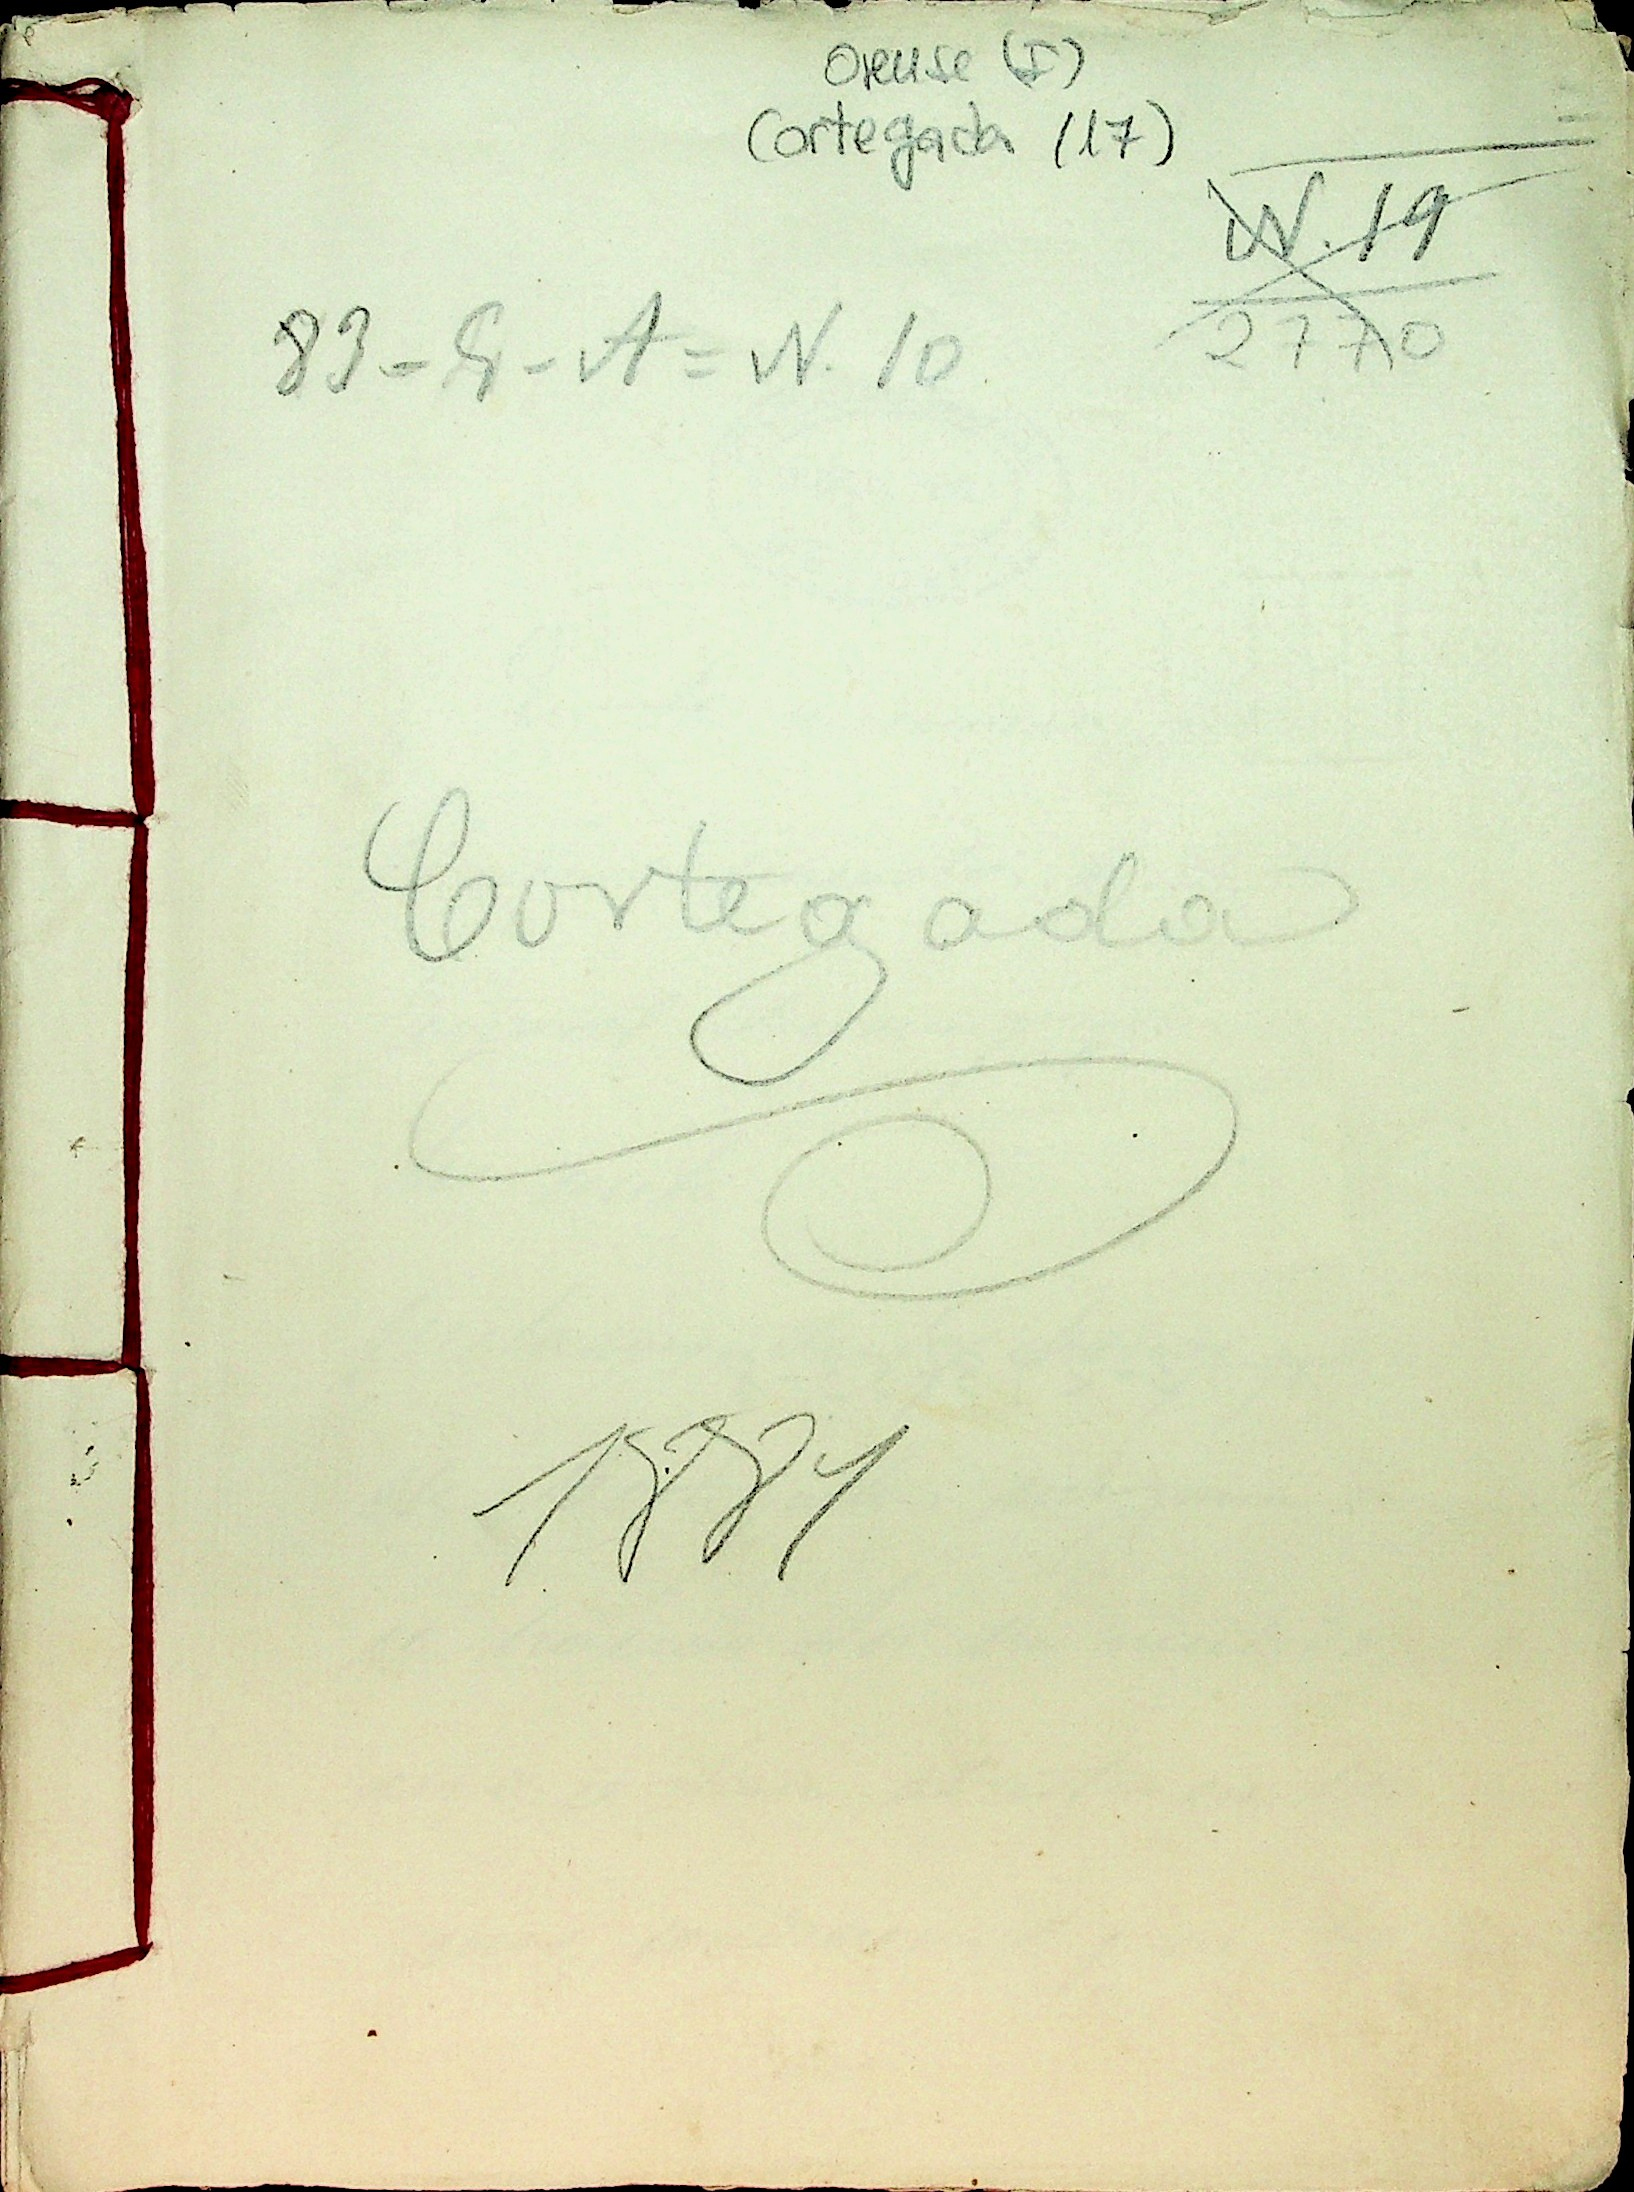 Orense (I)
Cortegada (17)
N. 19
2770
83 - G - A = N. 10.
Cortegada
1884